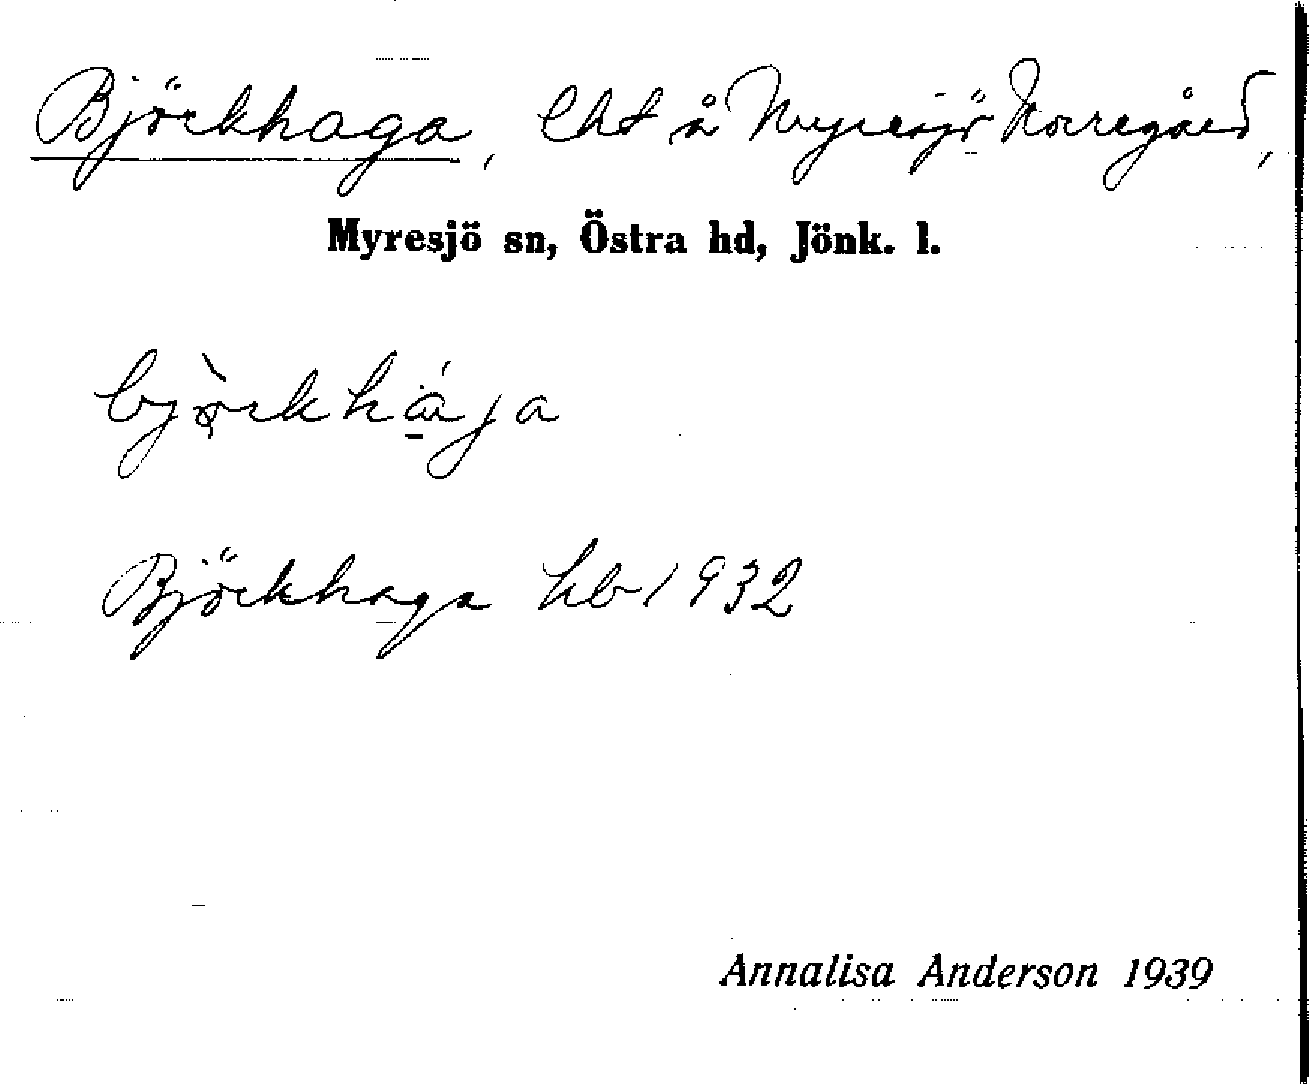 Björkhaga, lht å Myresjö Norregård,
Myresjö sn, Östra hd, Jönk. l.
Björkhaga hb 1932
Annalisa Anderson 1939